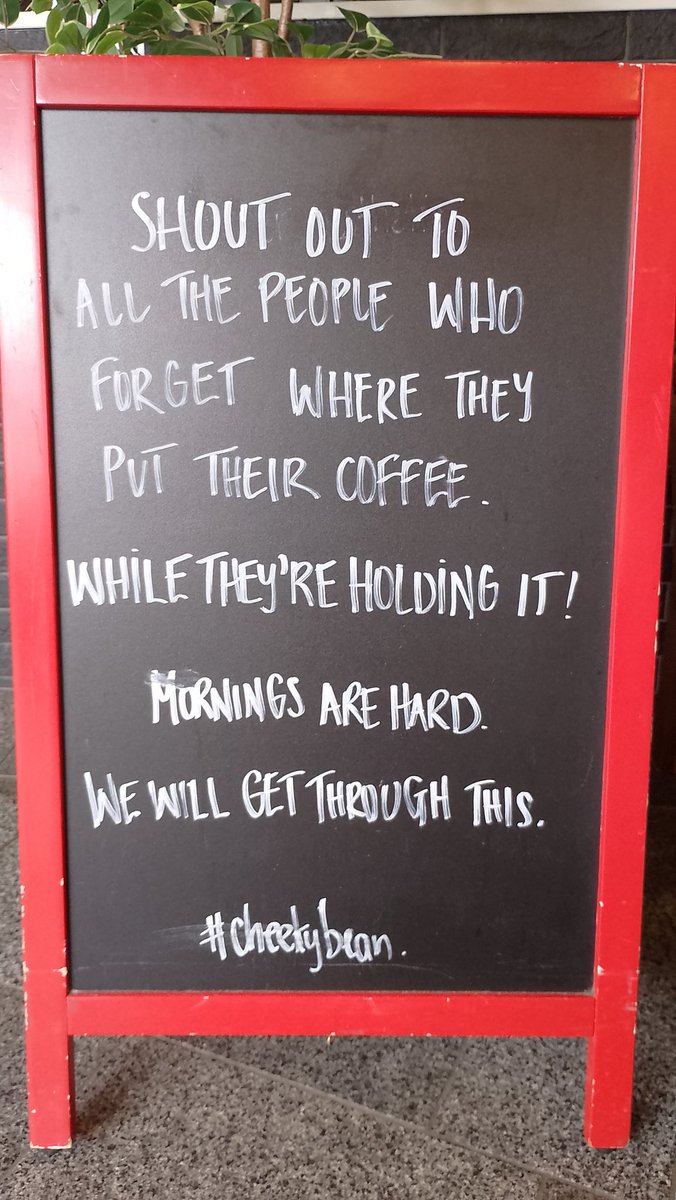 SHOUT OUT TO
ALL THE PEOPLE WHO
FORGET WHERE THEY
PUT THEIR COFFEE.
WHILE THEY'RE HOLDING IT!
MORNINGS ARE HARD.
WE WILL GET THROUGH THIS.
#cheekybean.